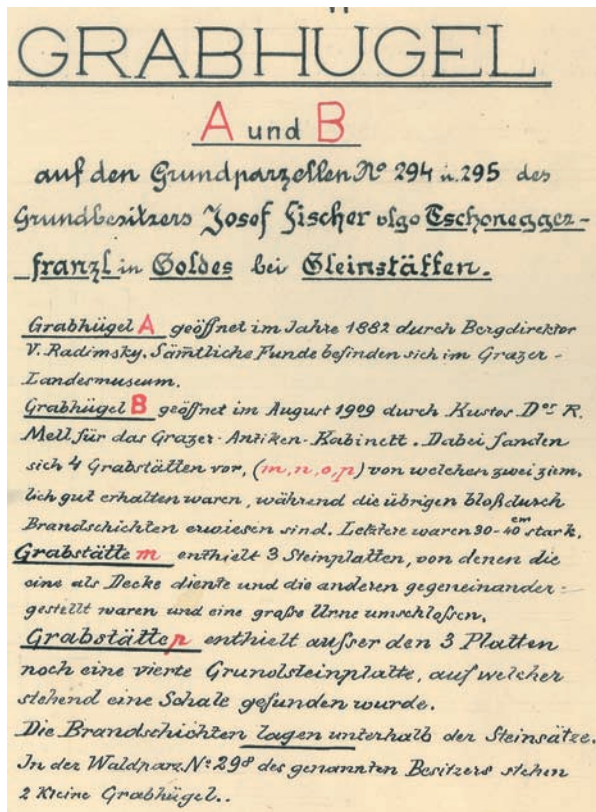 GRABHÜGEL
A und B
auf den Grundparzellen No 294 u. 295 des
Grundbesitzers Josef Fischer vlgo Tschonegger-
franzl in Goldes bei Gleinstätten.
Grabhügel A geöffnet im Jahre 1882 durch Bergdirektor
V. Radimsky. Sämtliche Funde befinden sich im Grazer-
Landesmuseum.
Grabhügel B geöffnet im August 1909 durch Kustos Dor R.
Mell für das Grazer-Antiken-Kabinett. Dabei fanden
sich 4 Grabstätten vor, (m, n, o, p) von welchen zwei ziem-
lich gut erhalten waren, während die übrigen bloß durch
Brandschichten erwiesen sind. Letztere waren 30-40 cm stark.
Grabstätte m enthielt 3 Steinplatten, von denen die
eine als Decke diente und die anderen gegeneinander-
gestellt waren und eine große Urne umschloßen.
Grabstätte p enthielt außer den 3 Platten
noch eine vierte Grundsteinplatte, auf welcher
stehend eine Schale gefunden wurde.
Die Brandschichten lagen unterhalb der Steinsätze.
In der Waldparz. No 298 des genannten Besitzers stehen
2 kleine Grabhügel..